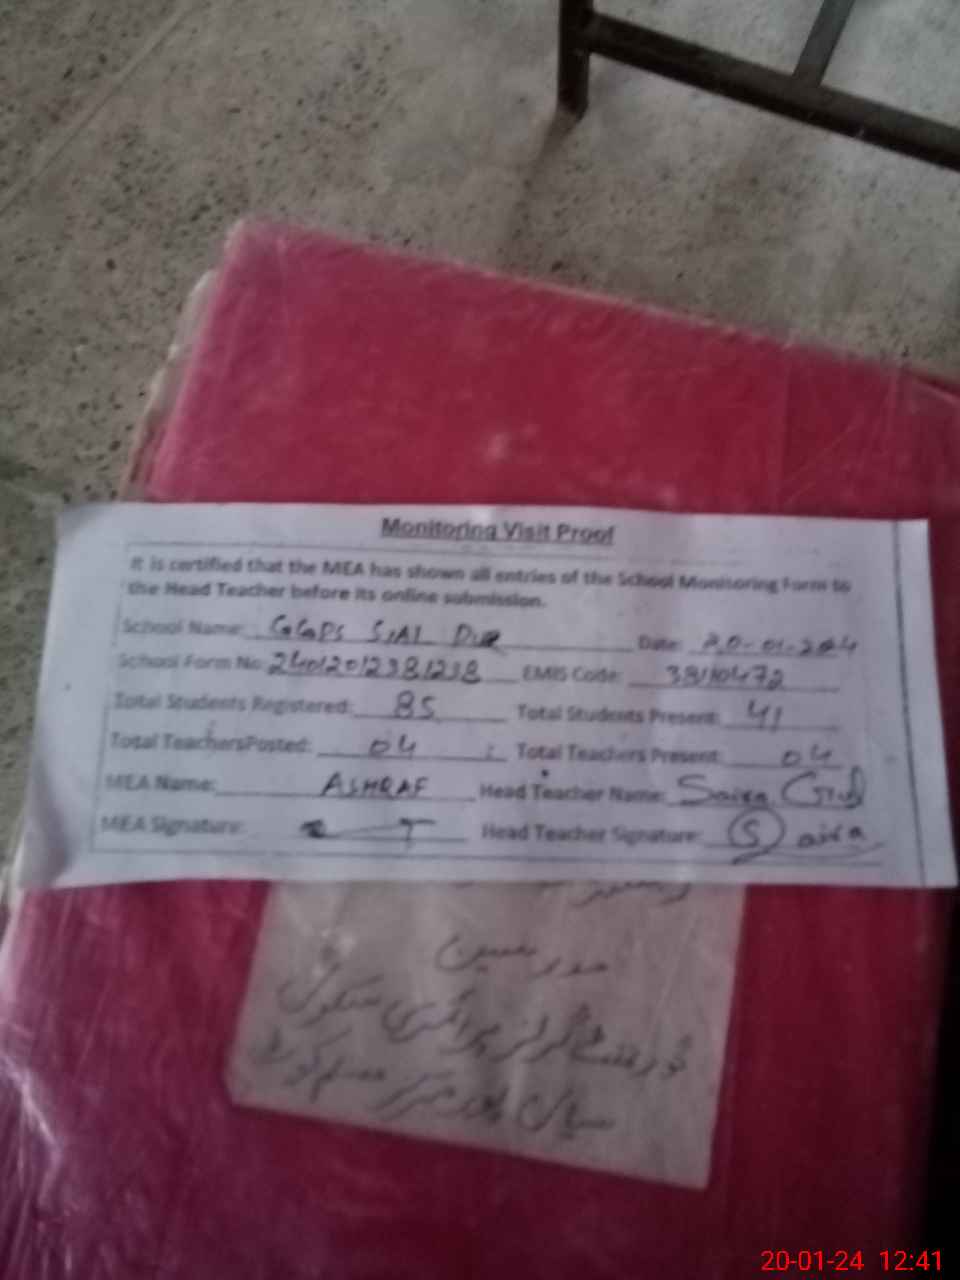 Monitoring Visit Proof
It is certified that the MEA has shown all entries of the School Monitoring Form to
the Head Teacher before its online submission.
School Name: GGPS SIAL Date: 20-01-2024
School Form No: 24012012381238 EMIS Code:
Total Students Registered: 85 Total Students Present: 41
Total TeachersPosted: 04 Total Teachers Present: 04
MEA Name: ASHRAF Head Teacher Name: Saira Gul
MEA Signature: Head Teacher Signature: Saira
گورنمنٹ گرلز پرائمری سکول
سیال پور مرکز
20-01-24 12:41